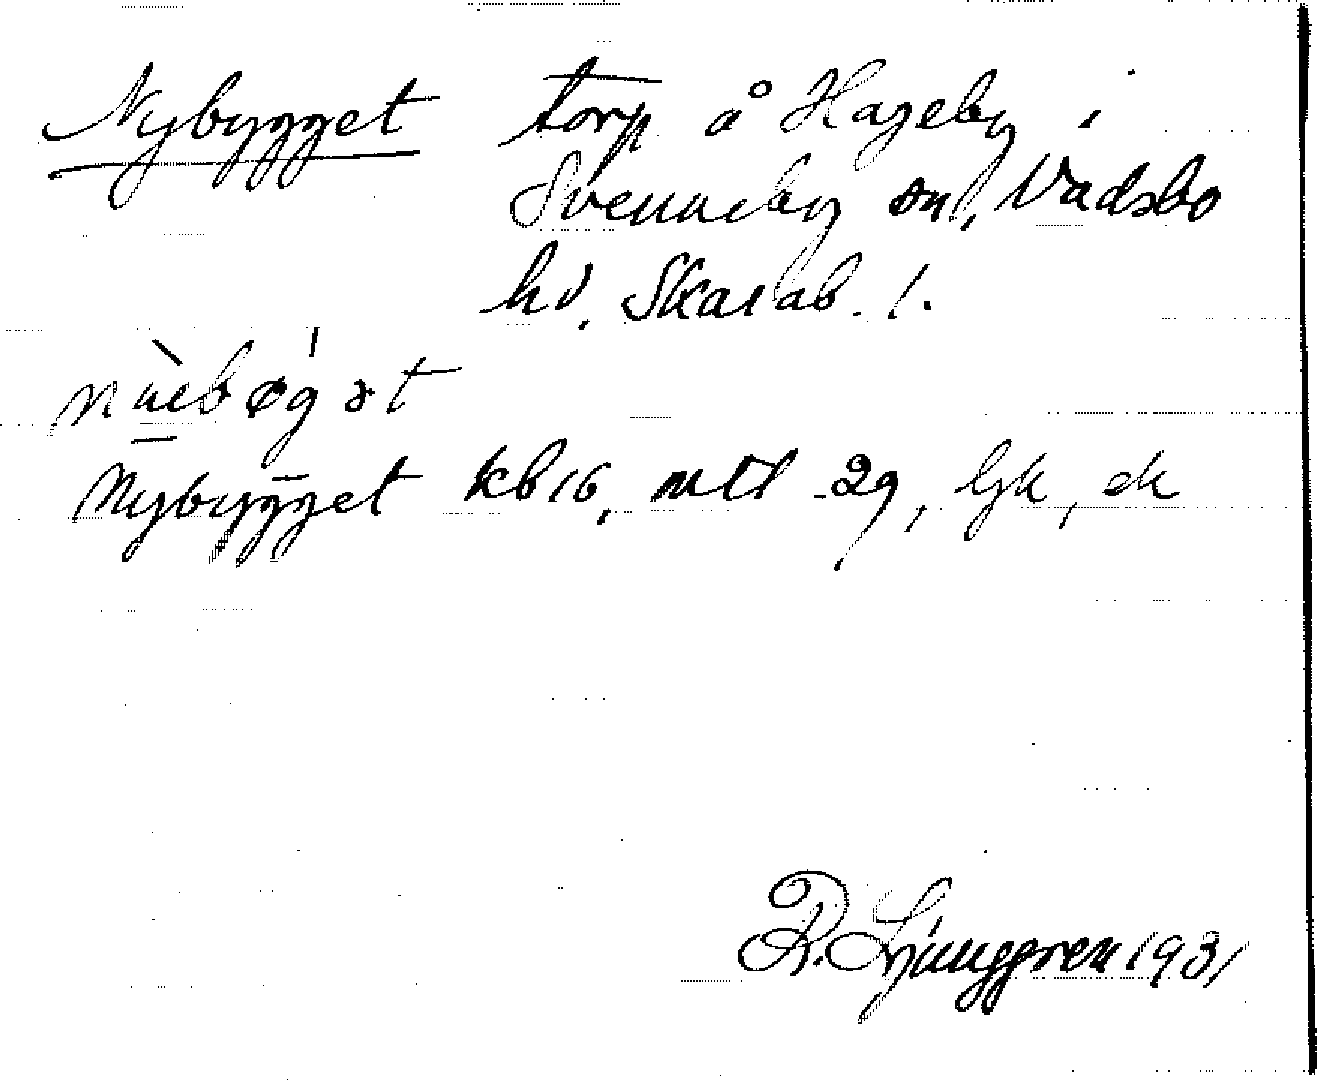 Nybygget torp å Hageby i
Svenneby sn, Vadsbo
hd. Skarab. l.
Nybygget kb 16, mtl 29, Gk, ek
R. Ljunggren 1931